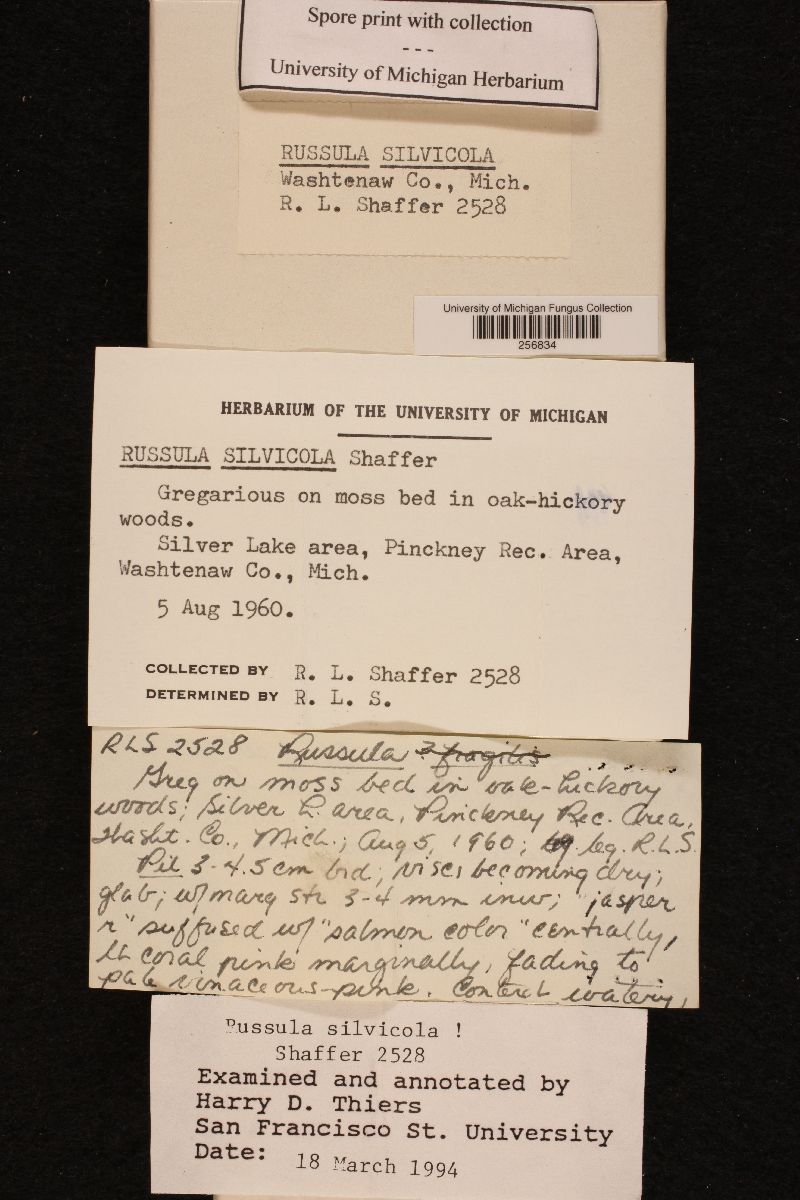 Spore print with collection
---
University of Michigan Herbarium
RUSSULA SILVICOLA
Washtenaw Co., Mich.
R. L. Shaffer 2528
University of Michigan Fungus Collection
256834
HERBARIUM OF THE UNIVERSITY OF MICHIGAN
RUSSULA SILVICOLA Shaffer
Gregarious on moss bed in oak-hickory
woods.
Silver Lake area, Pinckney Rec. Area,
Washtenaw Co., Mich.
5 Aug 1960.
COLLECTED BY R. L. Shaffer 2528
DETERMINED BY R. L. S.
RLS 2528 Russula ? fragilis
Greg on moss bed in oak-hickory
woods; Silver L. area, Pinckney Rec. Area,
Washt. Co., Mich.; Aug 5, 1960; leg. R.L.S.
Pil 3-4.5 cm brd; viscs becoming dry;
glab; w/ marg str 3-4 mm inw; "jasper
r" suffused w/ "salmon color" centrally,
lt coral pink marginally, fading to
pale vinaceous-pink. Context watery,
Russula silvicola !
Shaffer 2528
Examined and annotated by
Harry D. Thiers
San Francisco St. University
Date: 18 March 1994